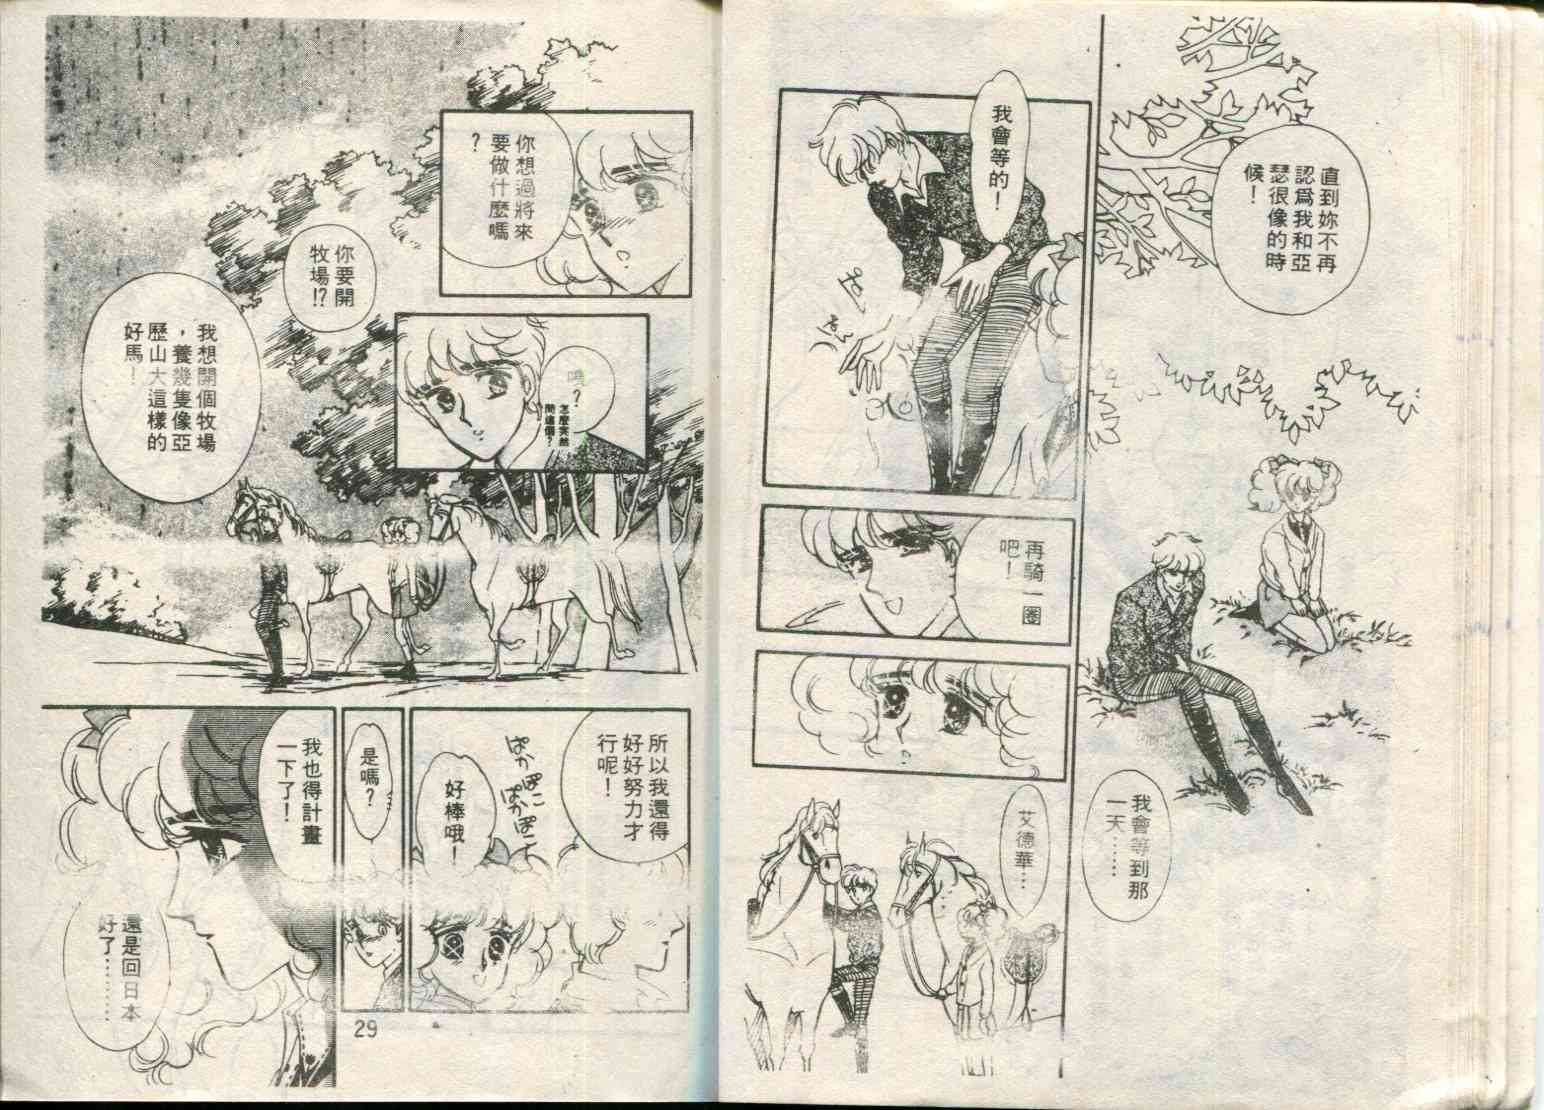 直到妳不再
認爲我和亞
瑟很像的時
候！
我會等到那
一天……
我會等的！
再騎一圈
吧！
艾德華…
你想過將來
要做什麼嗎
？
噢？
怎麼突然
問這個？
你要開
牧場!?
我想開個牧場
，養幾隻像亞
歷山大這樣的
好馬！
所以我還得
好好努力才
行呢！
ぱかぽこ
ぱかぽこ
好棒哦！
是嗎？
我也得計畫
一下了！
還是回日本
好了………
29